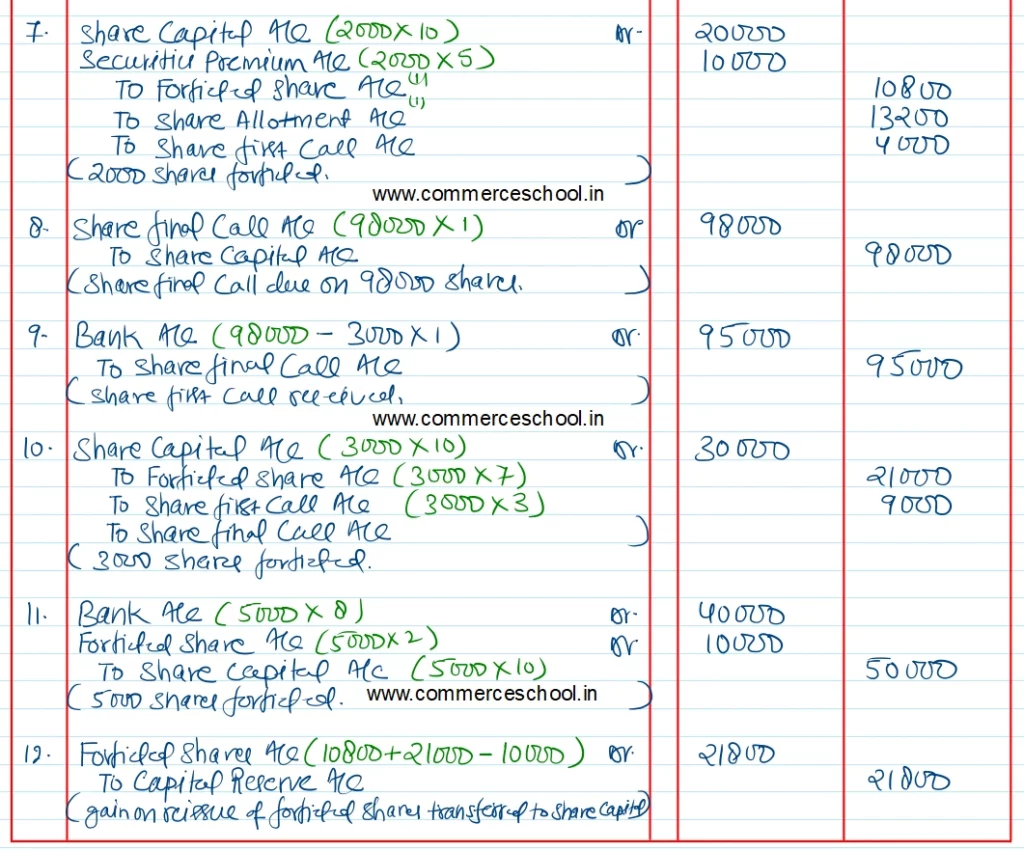 7. Share Capital A/c (2000 X 10) Dr. 20000
Securities Premium A/c (2000 X 5) 10000
To Forfieted Share A/c (1) 10800
To Share Allotment A/c (1) 13200
To Share first Call A/c 4000
( 2000 Shares forfieted. )
www.commerceschool.in
8. Share final Call A/c (98000 X 1) Dr 98000
To Share Capital A/c 98000
( Share final Call due on 98000 Shares. )
9. Bank A/c (98000 - 3000 X 1) Dr. 95000
To Share final Call A/c 95000
( Share first Call received. )
www.commerceschool.in
10. Share Capital A/c (3000 X 10) Dr. 30000
To Forfieted Share A/c (3000 X 7) 21000
To Share first Call A/c (3000 X 3) 9000
To Share final Call A/c )
( 3000 Share forfieted.
11. Bank A/c (5000 X 8) Dr. 40000
Forfieted Share A/c (5000 X 2) Dr 10000
To Share Capital A/c (5000 X 10) 50000
( 5000 Shares forfieted. www.commerceschool.in )
12. Forfieted Shares A/c (10800+21000-10000) Dr. 21800
To Capital Reserve A/c 21800
( gain on reissue of forfieted Shares transferred to Share Capital)